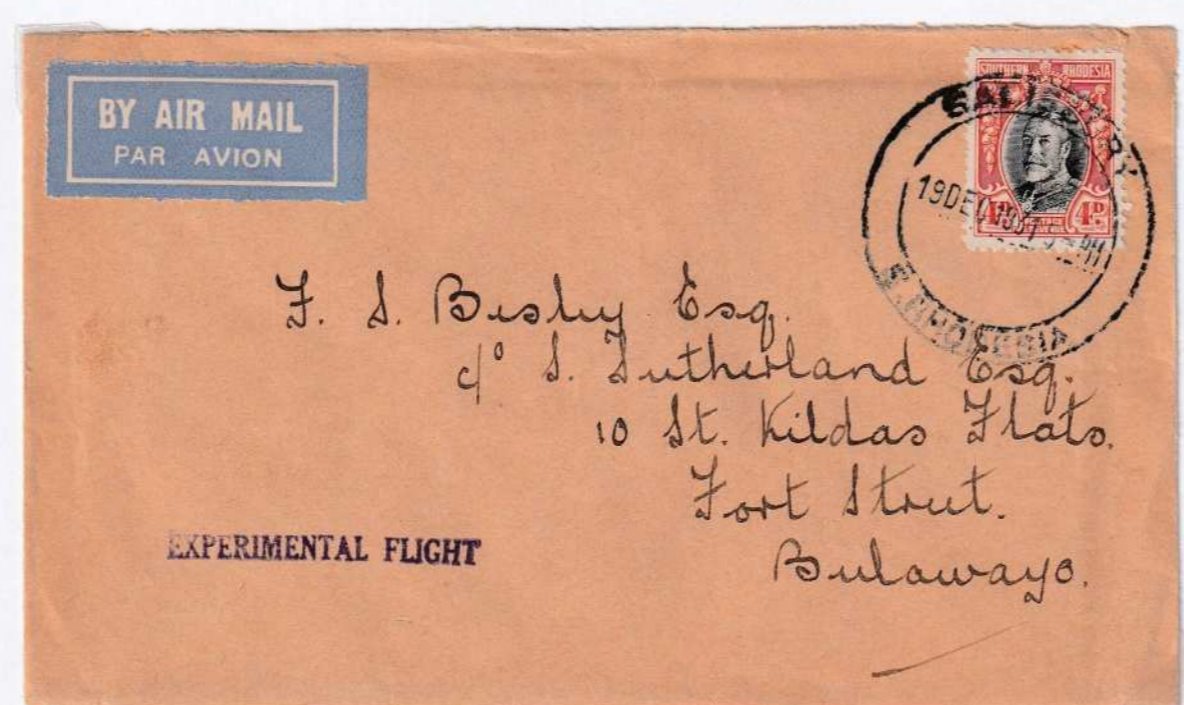 BY AIR MAIL
PAR AVION
SOUTHERN RHODESIA
POSTAGE
REVENUE
4D. 4D.
SALISBURY
19 DEC 1931
S. RHODESIA
F. S. Bisby Esq.
c/o S. Sutherland Esq.
10 St. Kildas Flats.
Fort Street.
Bulawayo.
EXPERIMENTAL FLIGHT